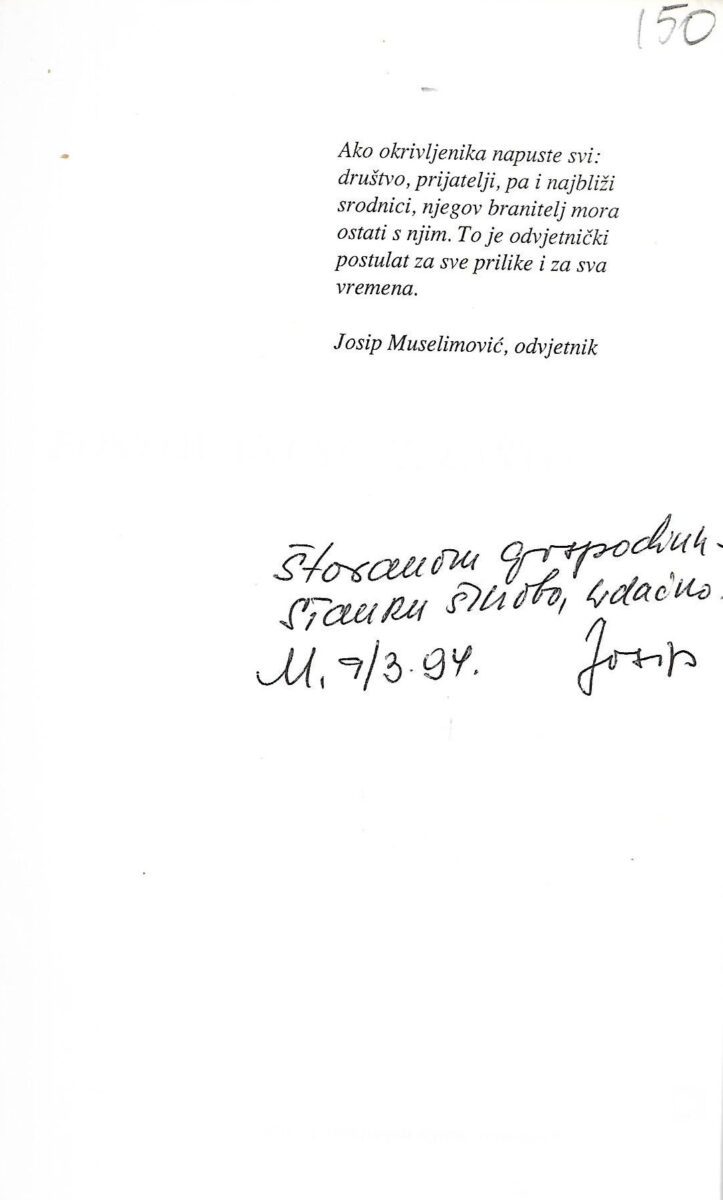 150
Ako okrivljenika napuste svi:
društvo, prijatelji, pa i najbliži
srodnici, njegov branitelj mora
ostati s njim. To je odvjetnički
postulat za sve prilike i za sva
vremena.
Josip Muselimović, odvjetnik
Štovanom gospodinu
Stanku
M. 7/3.94. Josip